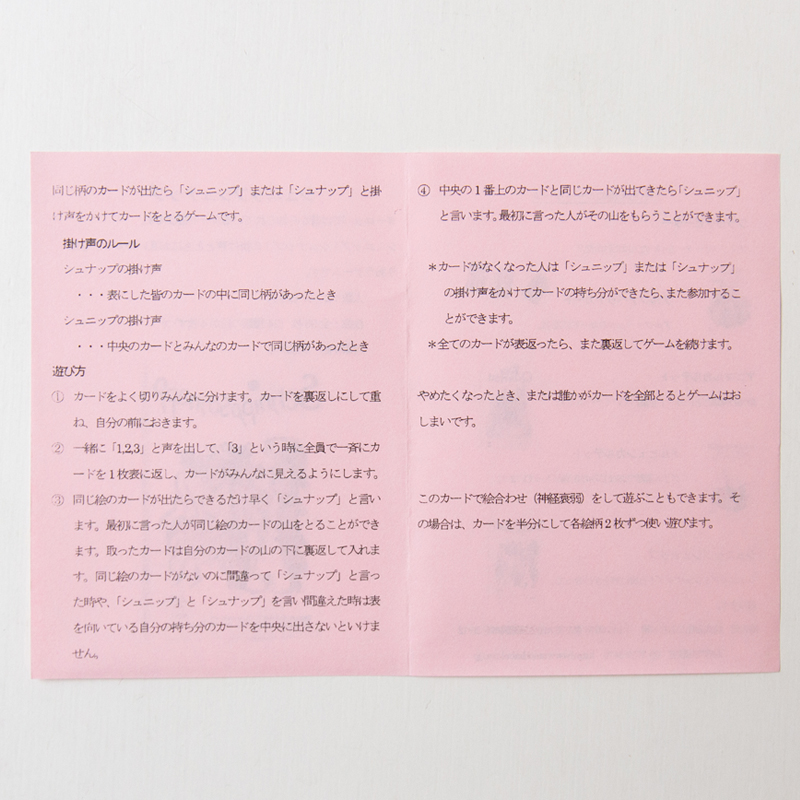 同じ柄のカードが出たら「シュニップ」または「シュナップ」と掛
け声をかけてカードをとるゲームです。
掛け声のルール
シュナップの掛け声
・・・表にした皆のカードの中に同じ柄があったとき
シュニップの掛け声
・・・中央のカードとみんなのカードで同じ柄があったとき
遊び方
① カードをよく切りみんなに分けます。カードを裏返しにして重
ね、自分の前におきます。
② 一緒に「1,2,3」と声を出して、「3」という時に全員で一斉にカ
ードを1枚表に返し、カードがみんなに見えるようにします。
③ 同じ絵のカードが出たらできるだけ早く「シュナップ」と言い
ます。最初に言った人が同じ絵のカードの山をとることができ
ます。取ったカードは自分のカードの山の下に裏返して入れま
す。同じ絵のカードがないのに間違って「シュナップ」と言っ
た時や、「シュニップ」と「シュナップ」を言い間違えた時は表
を向いている自分の持ち分のカードを中央に出さないといけま
せん。
④ 中央の1番上のカードと同じカードが出てきたら「シュニップ」
と言います。最初に言った人がその山をもらうことができます。
＊カードがなくなった人は「シュニップ」または「シュナップ」
の掛け声をかけてカードの持ち分ができたら、また参加するこ
とができます。
＊全てのカードが表返ったら、また裏返してゲームを続けます。
やめたくなったとき、または誰かがカードを全部とるとゲームはお
しまいです。
このカードで絵合わせ（神経衰弱）をして遊ぶこともできます。そ
の場合は、カードを半分にして各絵柄2枚ずつ使い遊びます。